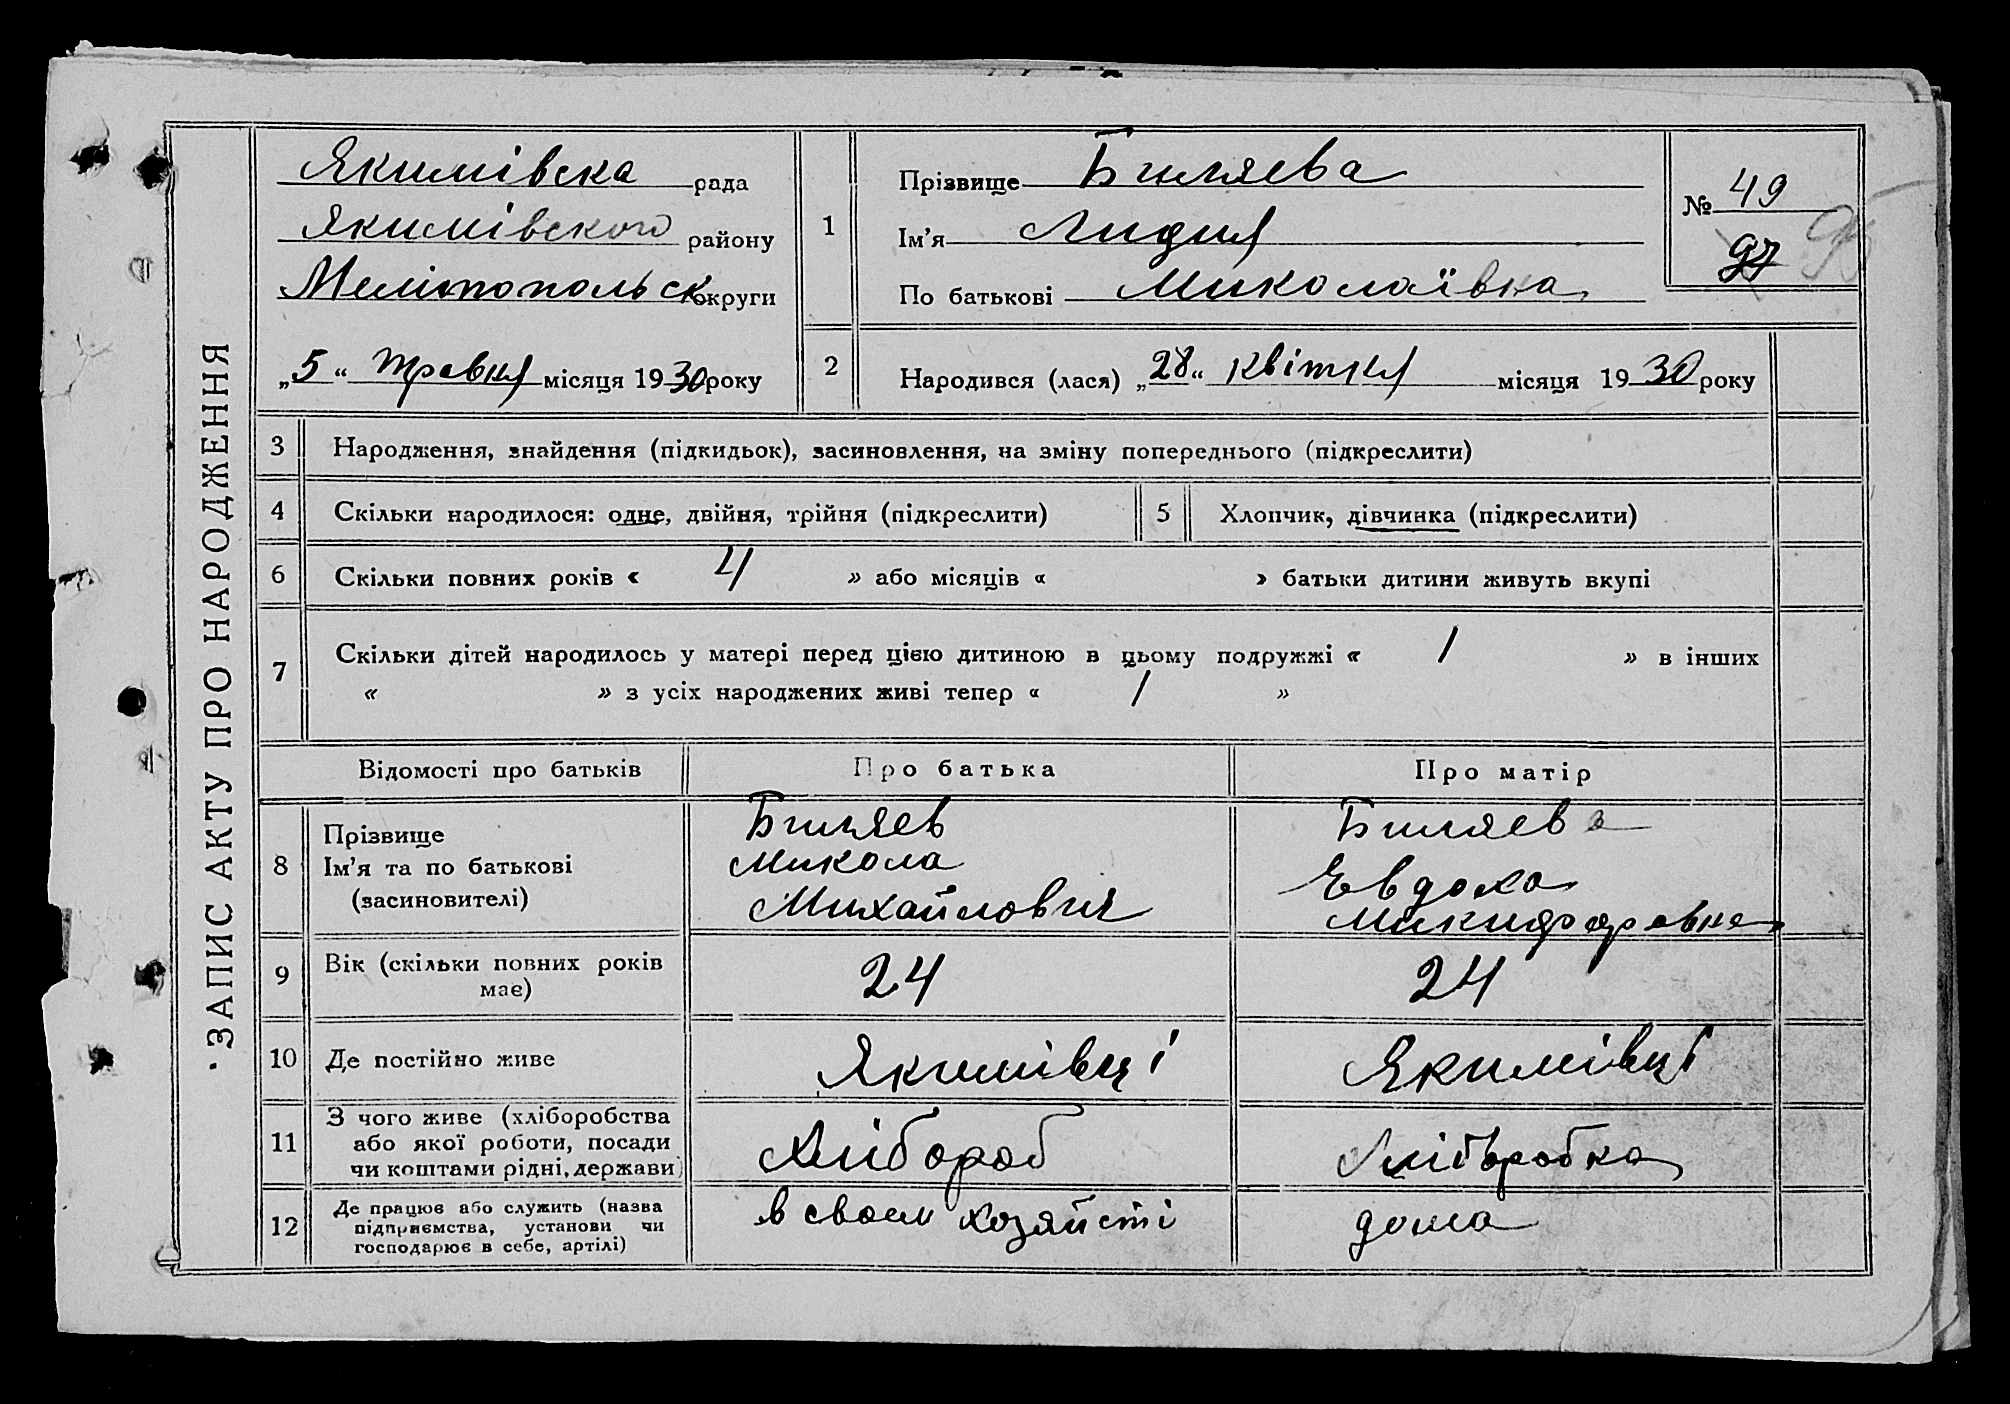 ЗАПИС АКТУ ПРО НАРОДЖЕННЯ
Якимівска рада
Якимівского району
Мелітопольск округи
„5“ Травня місяця 1930 року
1
Прізвище Биляева
Ім’я Лидия
По батькові Миколаївна
№ 49
97
95
2
Народився (лася) „28“ квітня місяця 1930 року
3 Народження, знайдення (підкидьок), засиновлення, на зміну попереднього (підкреслити)
4 Скільки народилося: одне, двійня, трійня (підкреслити)
5 Хлопчик, дівчинка (підкреслити)
6 Скільки повних років « 4 » або місяців « » батьки дитини живуть вкупі
7 Скільки дітей народилось у матері перед цією дитиною в цьому подружжі « 1 » в інших
« » з усіх народжених живі тепер « 1 »
Відомості про батьків Про батька Про матір
8
Прізвище
Ім’я та по батькові
(засиновителі)
Биляев
Микола
Михайлович
Биляева
Евдоха
Микифоровна
9
Вік (скільки повних років
має)
24
24
10 Де постійно живе
Якимівці
Якимівці
11
З чого живе (хліборобства
або якої роботи, посади
чи коштами рідні, держави)
Хлібороб
Хліборобка
12
Де працює або служить (назва
підприємства, установи чи
господарює в себе, артілі)
в своем хозяйсті
дома